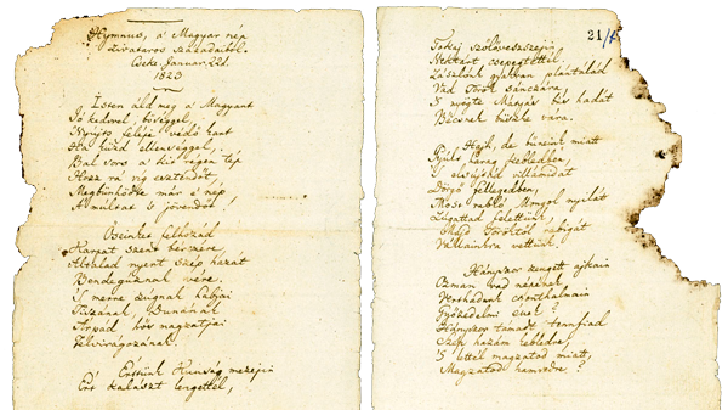 Hymnus, a Magyar nép
zivataros századaiból.
Cseke, Januar. 22d.
1823
Isten áld meg a Magyart
Jó kedvvel, bőséggel,
Nyújts feléje védő kart
Ha küzd ellenséggel,
Bal sors a kit régen tép
Hozz rá víg esztendőt,
Megbűnhődte már e nép
A multat s jövendőt!
Őseinket felhozád
Kárpát szent bérczére,
Általad nyert szép hazát
Bendegúznak vére.
'S merre zúgnak habjai
Tiszának, Dunának
Árpád hős magzatjai
Felvirágozának.
Értünk Kunság mezején
Ért kalászt lengettél,
21/
Tokaj szőlővesszein
Nektárt csepegtettél,
Zászlónk gyakran plántálád
Vad Török sánczára,
'S nyögte Mátyás bús hadát
Bécsnek büszke vára.
Hajh, de bűneink miatt
Gyúlt harag kebledben,
'S elsújtád villámidat
Dörgő fellegedben,
Most rabló Mongol nyilát
Zúgattad felettünk,
Majd Töröktől rabigát
Vállainkra vettünk.
Hányszor zengett ajkain
Ozman vad népének
Vert hadunk csonthalmain
Győzedelmi ének?
Hányszor támadt tennfiad
Szép hazám kebledre,
'S lettél magzatod miatt,
Magzatod hamvvedre?